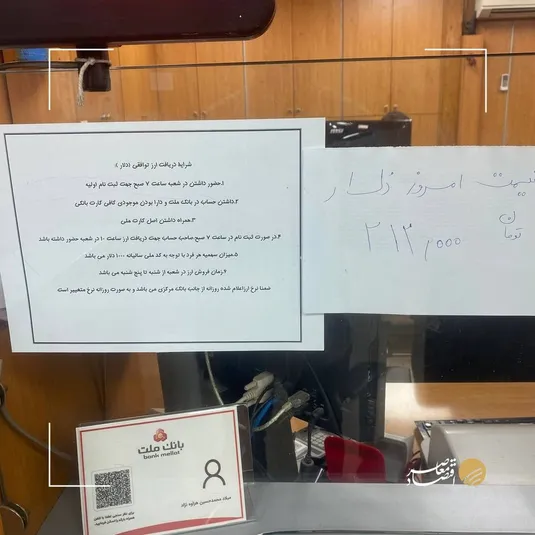 شرایط دریافت ارز توافقی (دلار ):
1.حضور داشتن در شعبه ساعت ۷ صبح جهت ثبت نام اولیه
2.داشتن حساب در بانک ملت و دارا بودن موجودی کافی کارت بانکی
3.همراه داشتن اصل کارت ملی
۴.در صورت ثبت نام در ساعت ۷ صبح،صاحب حساب جهت دریافت ارز ساعت ۱۰ در شعبه حضور داشته باشد
۵.میزان سهمیه هر فرد با توجه به کد ملی سالیانه ۱۰۰۰ دلار می باشد
۶.زمان فروش ارز در شعبه از شنبه تا پنج شنبه می باشد
ضمنا نرخ ارزاعلام شده روزانه از جانب بانک مرکزی می باشد و به صورت روزانه نرخ متغییر است
قیمت امروز دلار
۲۱۳,۰۰۰ تومان
بانک ملت
bank mellat
اقتصاد معاصر